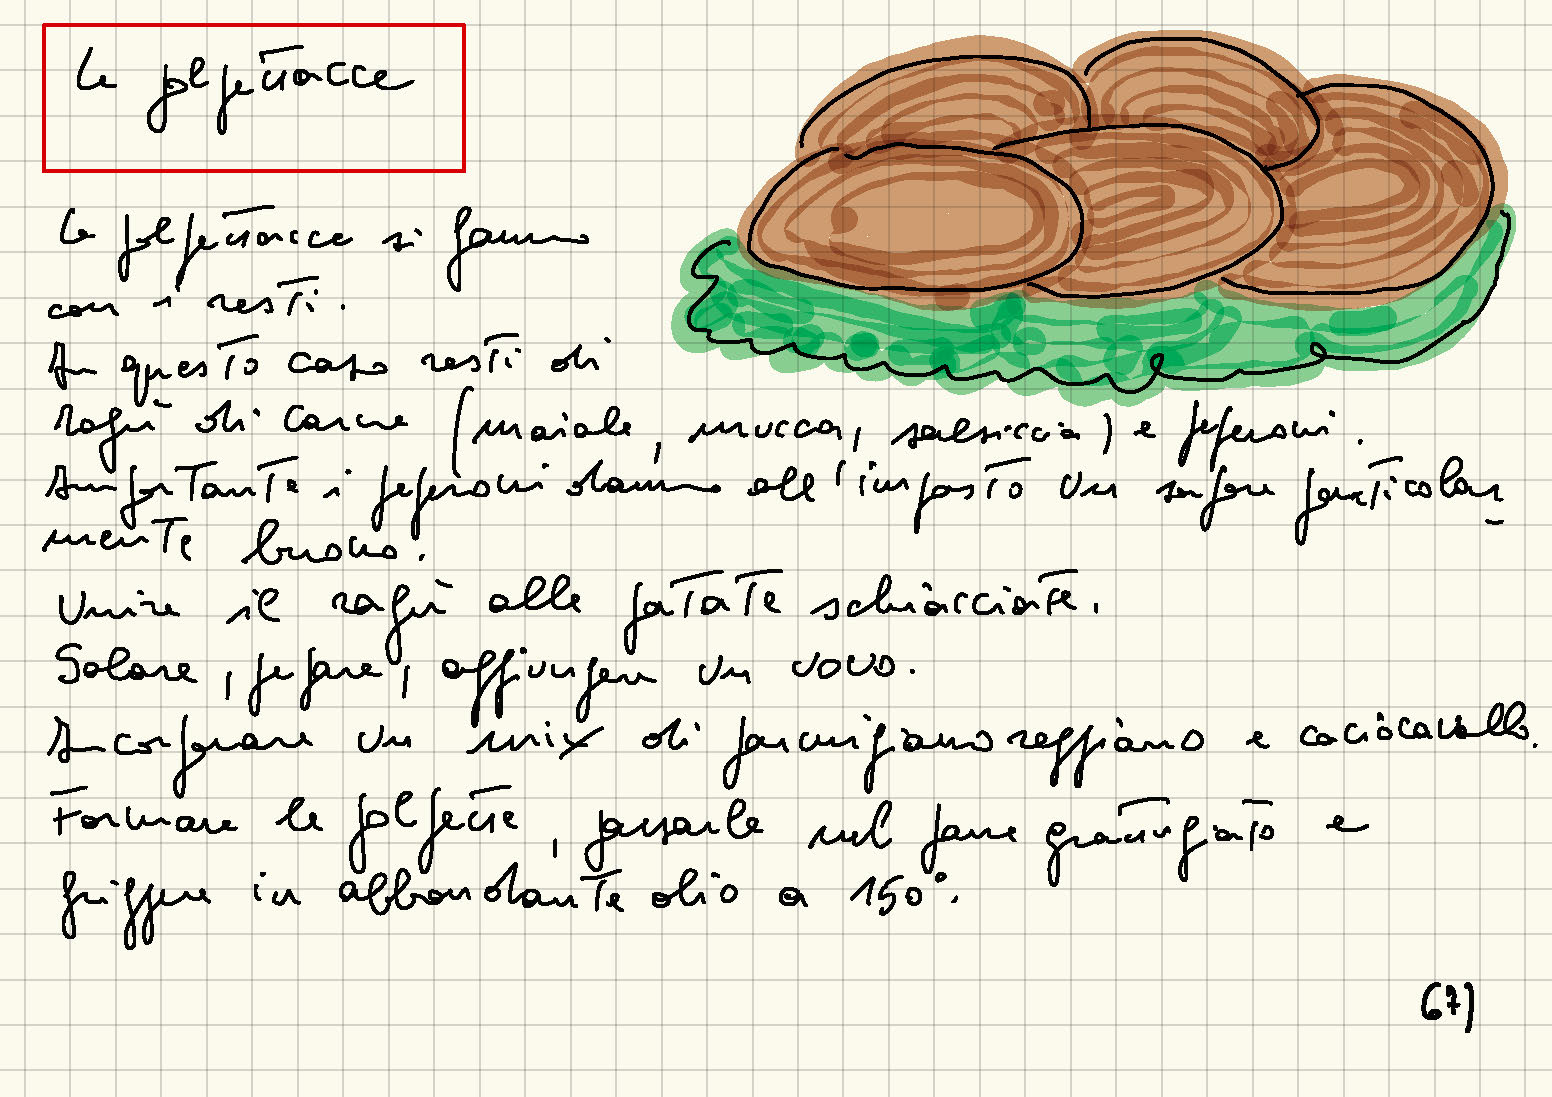 Le polpettacce
Le polpettacce si fanno
con i resti.
In questo caso resti di
ragù di carne (maiale, mucca, salsiccia) e peperoni.
Importante i peperoni danno all'impasto un sapore particolar
mente buono.
Unire il ragù alle patate schiacciate.
Salare, pepare, aggiungere un uovo.
Incorporare un mix di parmigiano reggiano e caciocavallo.
Formare le polpette, passarle nel pane grattugiato e
friggere in abbondante olio a 150°.
67)